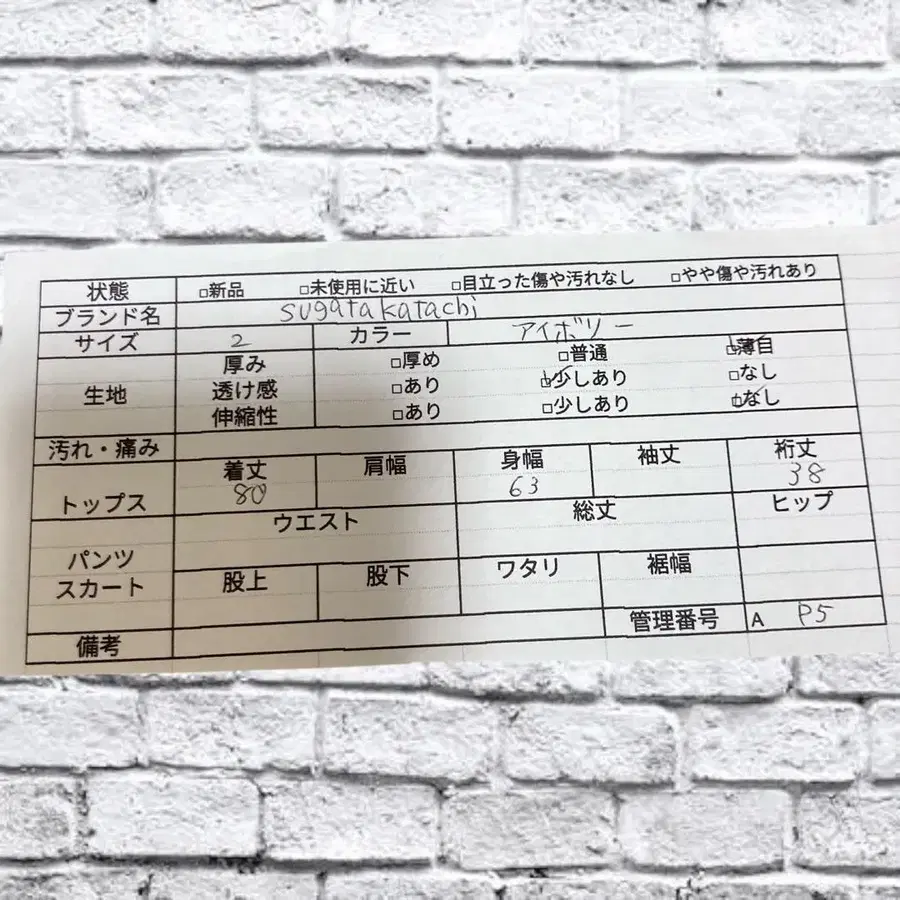 状態 □新品 □未使用に近い □目立った傷や汚れなし □やや傷や汚れあり
ブランド名 sugatakatachi
サイズ 2 カラー アイボリー
生地
厚み □厚め □普通 ☑薄自
透け感 □あり ☑少しあり □なし
伸縮性 □あり □少しあり ☑なし
汚れ・痛み
トップス
着丈 肩幅 身幅 袖丈 裄丈
80 63 38
パンツ
スカート
ウエスト 総丈 ヒップ
股上 股下 ワタリ 裾幅
備考 管理番号 A P5